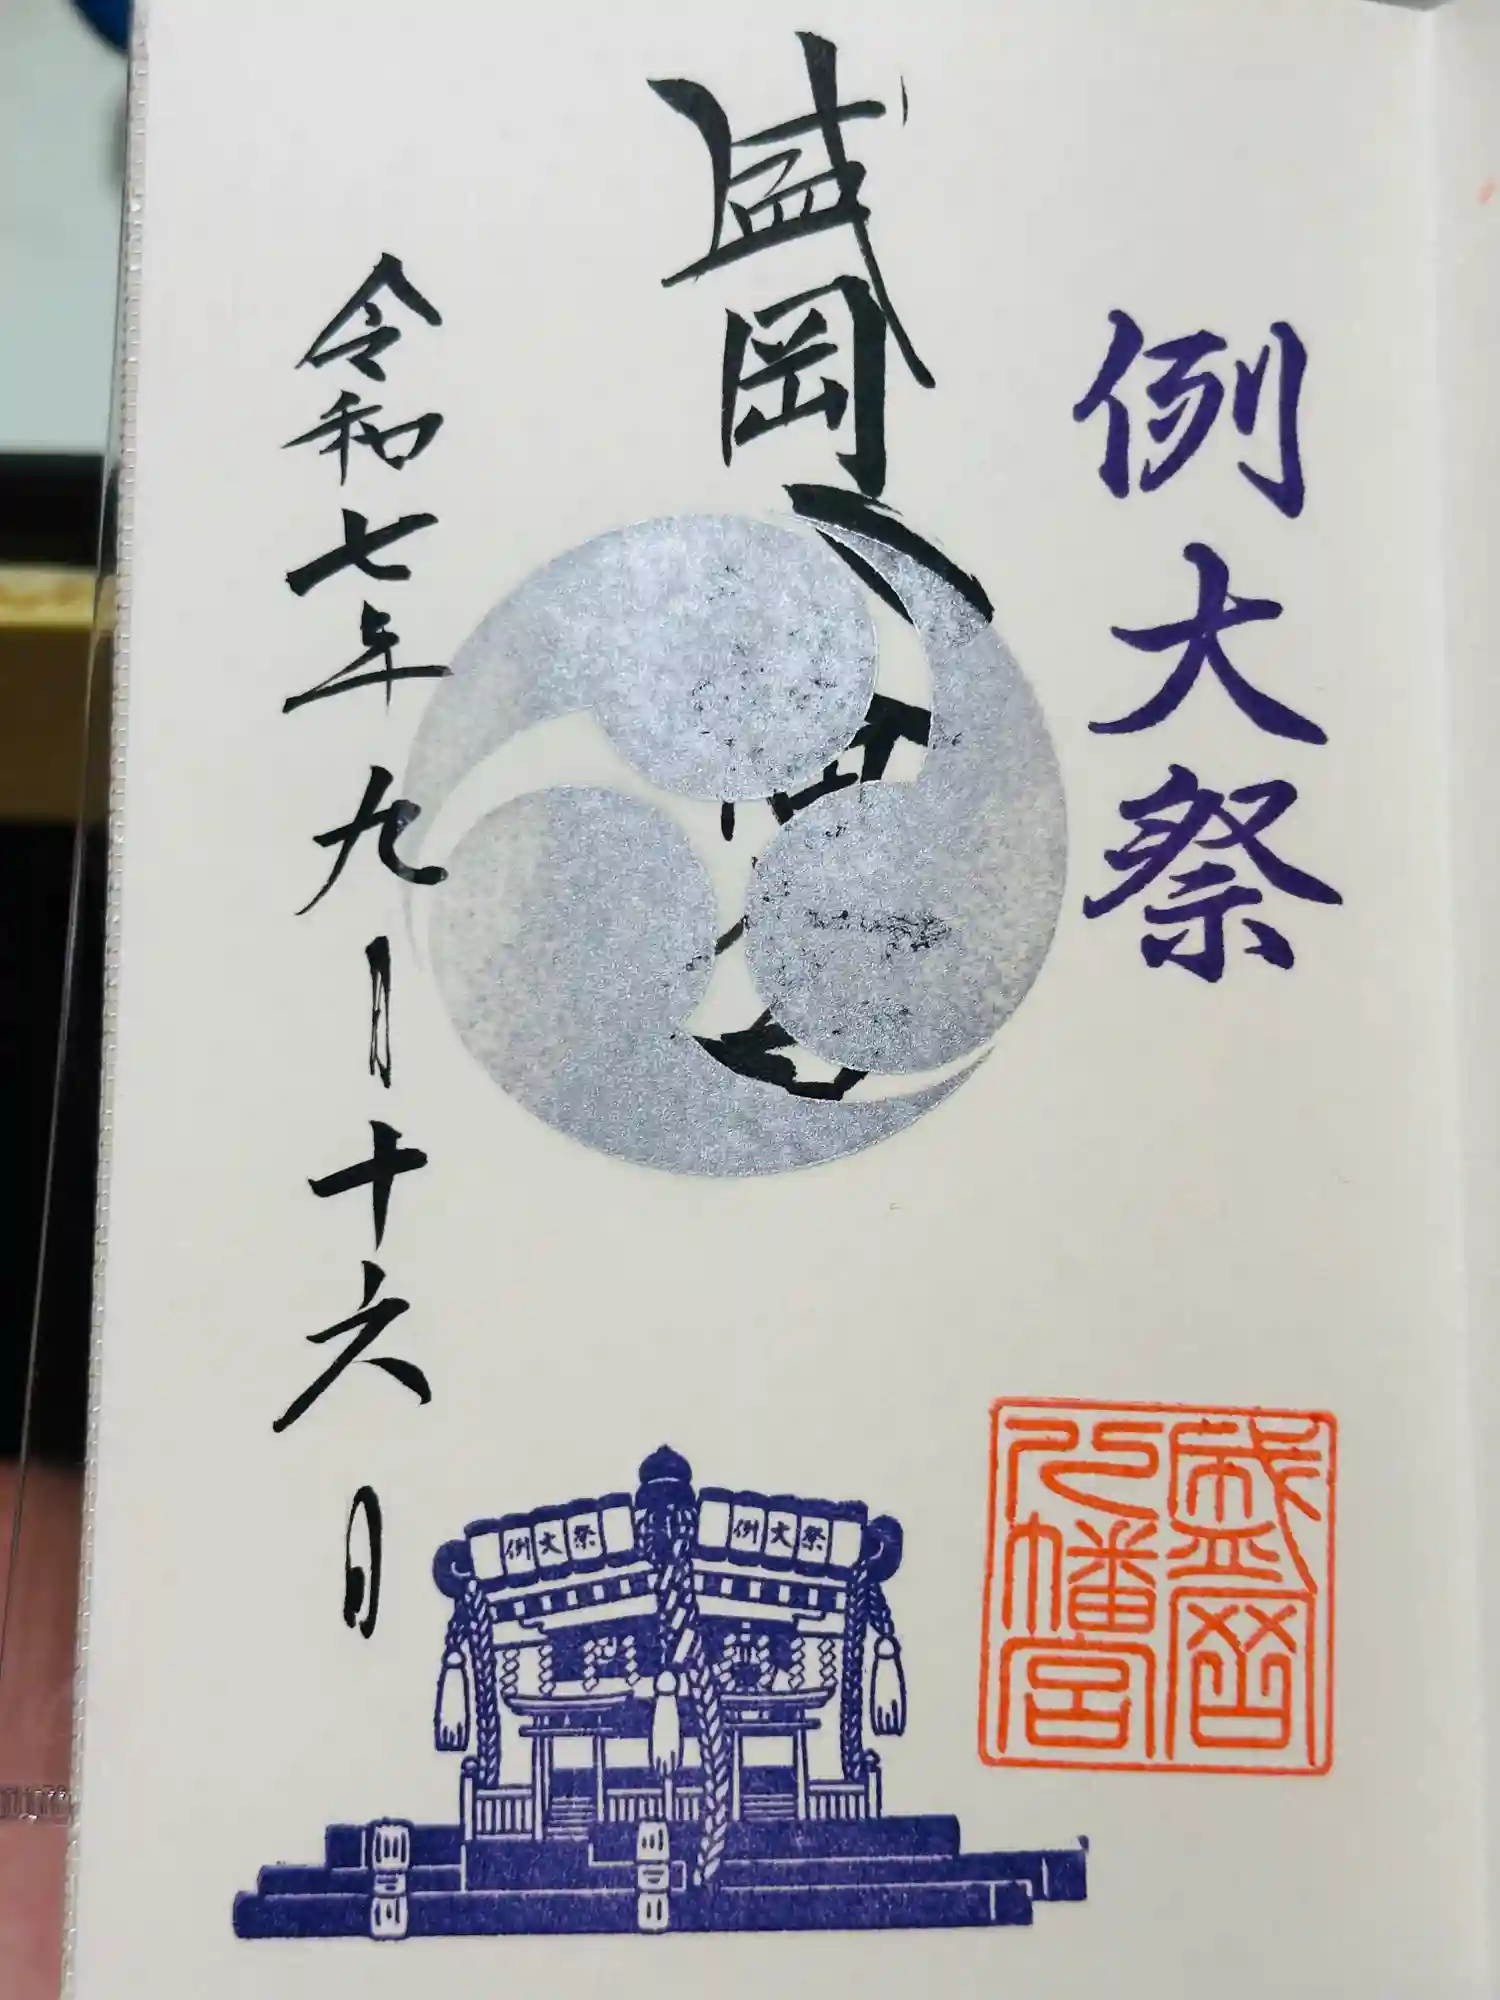 例大祭
盛岡八幡宮
令和七年九月十六日
例大祭
例大祭
盛岡
八幡宮